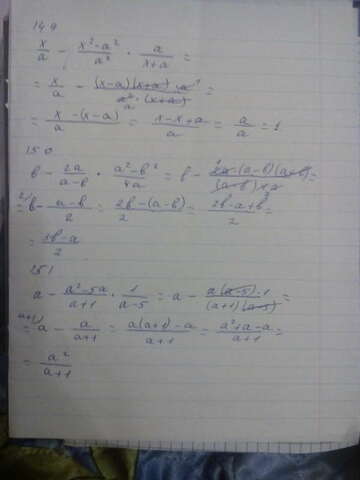 149
x/a - (x²-a²)/a² · a/(x+a) =
= x/a - ((x-a)(x+a)·a¹)/(a²·(x+a)) =
= (x-(x-a))/a = (x-x+a)/a = a/a = 1
150
b - 2a/(a-b) · (a²-b²)/4a = b - (2a·(a-b)(a+b))/((a-b)·4a) =
= b - (a-b)/2 = (2b-(a-b))/2 = (2b-a+b)/2 =
= (3b-a)/2
151
a - (a²-5a)/(a+1) · 1/(a-5) = a - (a(a-5)·1)/((a+1)(a-5)) =
= a - a/(a+1) = (a(a+1)-a)/(a+1) = (a²+a-a)/(a+1) =
= a²/(a+1)